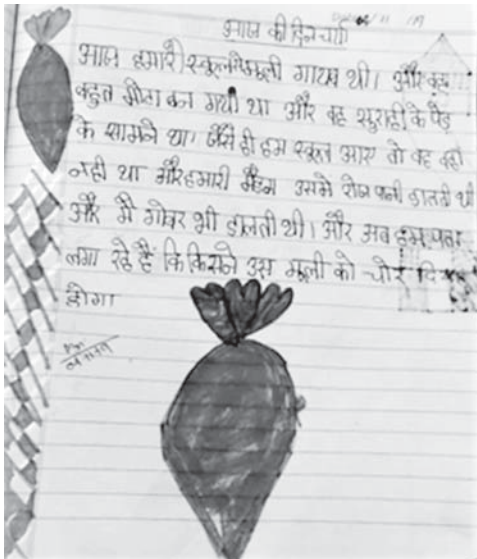 आज की दिनचर्या
आज हमारे स्कूल से मूली गायब थी। और वह
बहुत मोटा बन गया था और वह सुराही के पेड़
के सामने था। जैसे ही हम स्कूल आए तो वह वहाँ
नही था और हमारी मैडम उसमे रोज पानी डालती थी
और मै गोबर भी डालती थी। और अब हम पता
लगा रहे हैं कि किसने उस मूली को चोर दि
होगा